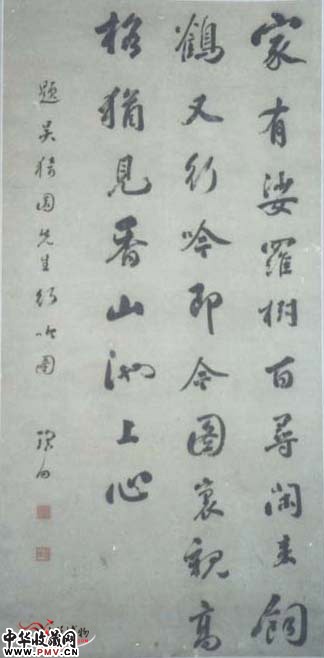 家有娑羅樹百尋閑来飼
鶴又行吟即今圖裏親高
格猶見香山池上心
題吳猗園先生行吟圖
中华收藏网
WWW.PMV.CN